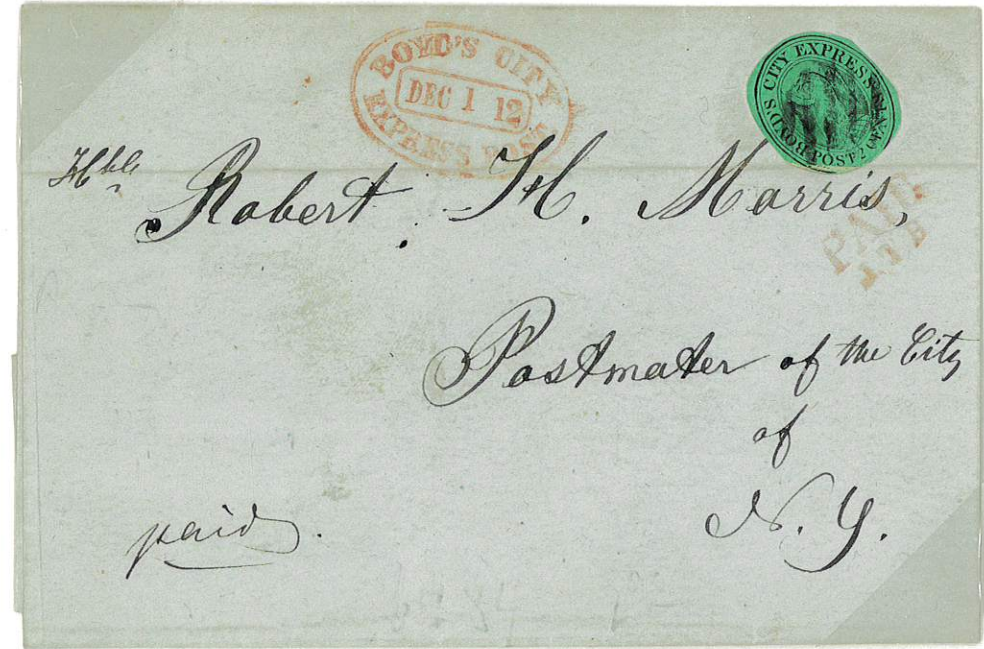 BOYD'S CITY
DEC 1 12
EXPRESS POST
BOYD'S CITY EXPRESS POST
Hble
Robert H. Morris,
PAID
J.T.B
Postmater of the City
of
N. Y.
paid.